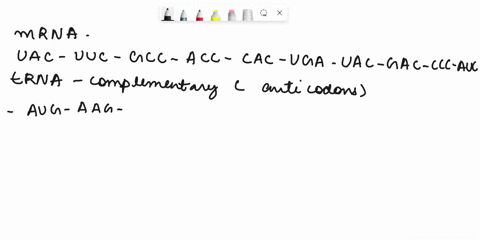 mRNA.
UAC - UUC - GCC - ACC - CAC - UGA - UAC - GAC - CCC - AUC
tRNA - complementary ( anticodons)
- AUG - AAG -